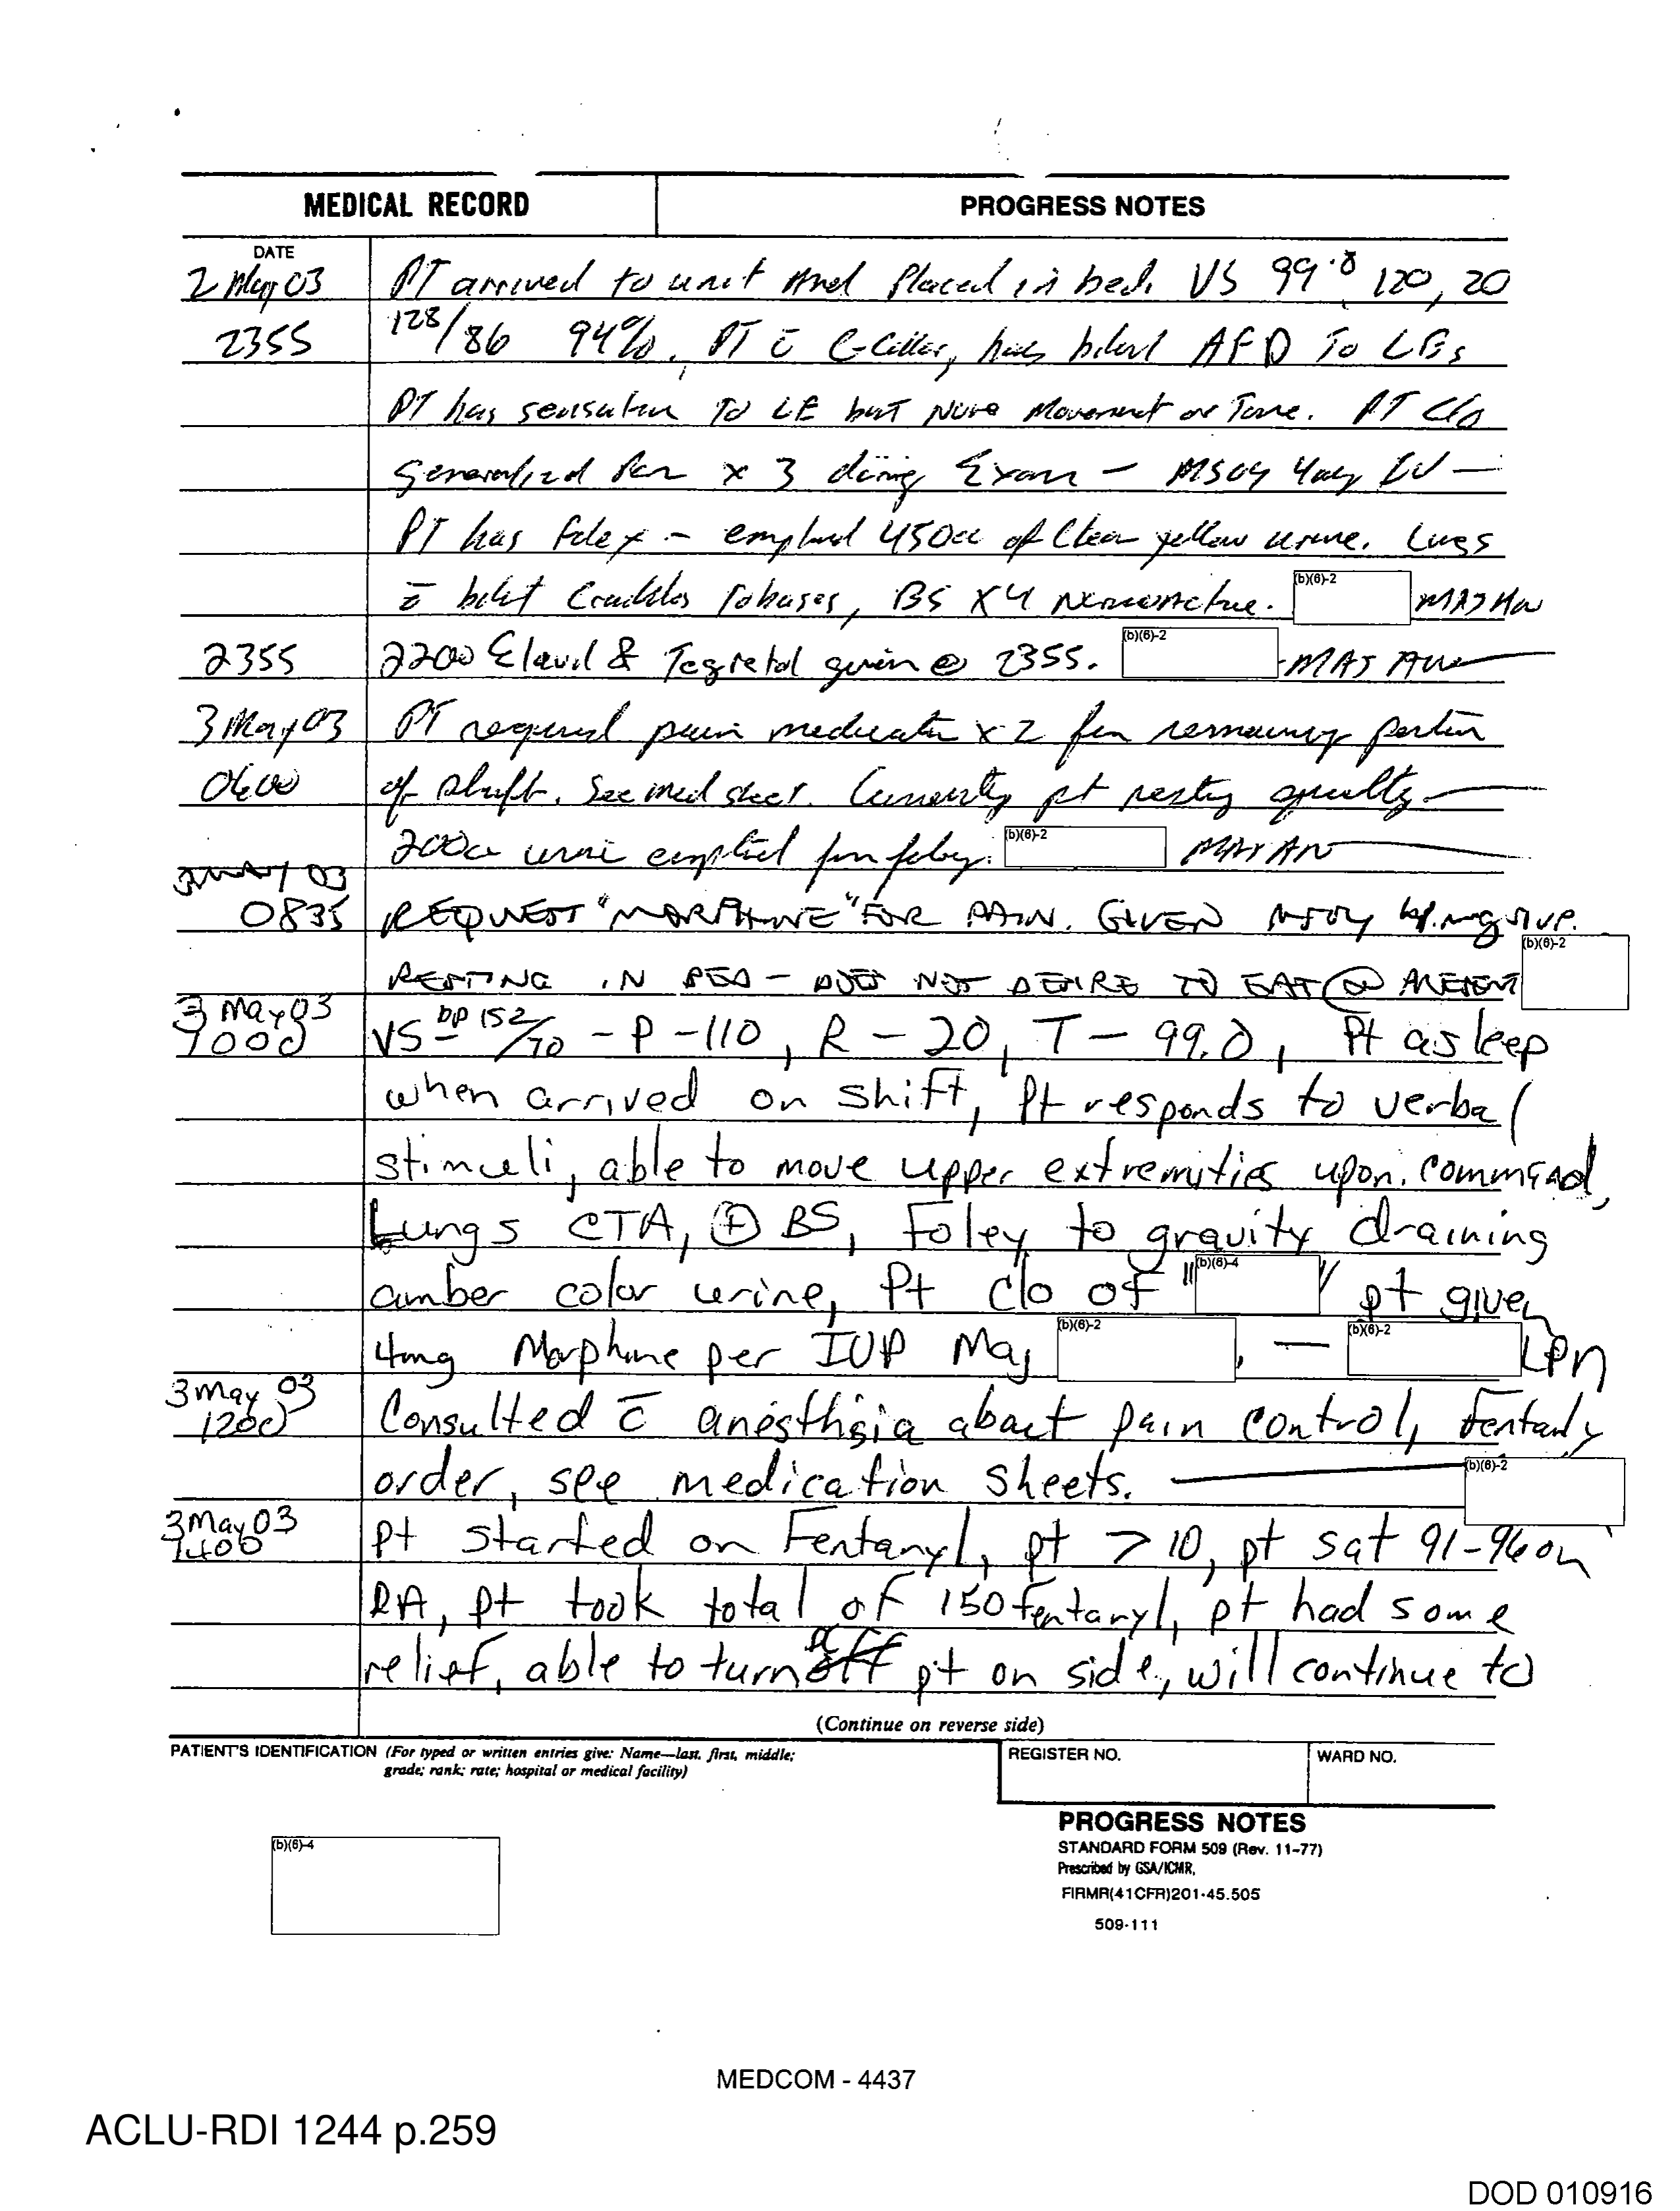 MEDICAL RECORD
PROGRESS NOTES
DATE
2 May 03 PT arrived to unit And Placed in bed. VS 99.8 120, 20
2355 128/86 94%. PT c̄ C-Collar, has bilat AFD To LEs
PT has sensation To LE but None Movement or Tone. PT c/o
generalized Pain x 3 during Exam - MSO4 4mg IV —
PT has foley - emptied 450cc of Clear yellow urine. Lungs
c̄ bilat Crackles to bases, BS x4 . (b)(6)-2 MAJ AN
2355 2200 Elavil & Tegretol given @ 2355. (b)(6)-2 - MAJ AN
3 May 03 PT required pain medication x 2 for remaining portion
0600 of shift. See med sheet. Currently pt resting quietly.
200cc urine emptied from foley. (b)(6)-2 MAJ AN
3 MAY 03
0835 REQUEST "MORPHINE" FOR PAIN. GIVEN MSO4 4.mg IVP. (b)(6)-2
RESTING IN BED - DOES NOT DESIRE TO EAT @ PRESENT
3 May 03
1000 VS - bp 152/70 - P - 110, R - 20, T - 99.0, Pt asleep
when arrived on shift, Pt responds to verbal
stimuli, able to move upper extremities upon command,
Lungs CTA, ⊕ BS, Foley to gravity draining
amber color urine, Pt c/o of "(b)(6)-4" pt given
4mg Morphine per IVP Maj (b)(6)-2, — (b)(6)-2 LPN
3 May 03
1200 Consulted c̄ anesthsia about pain control, Fentanly
order, see medication sheets. (b)(6)-2
3 May 03
1400 pt started on Fentanyl, pt > 10, pt sat 91-96 on
RA, pt took total of 150 fentanyl, pt had some
relief, able to turn off pt on side, will continue to
(Continue on reverse side)
PATIENT'S IDENTIFICATION (For typed or written entries give: Name—last, first, middle;
grade; rank; rate; hospital or medical facility)
REGISTER NO.
WARD NO.
(b)(6)-4
PROGRESS NOTES
STANDARD FORM 509 (Rev. 11-77)
Prescribed by GSA/ICMR,
FIRMR(41CFR)201-45.505
509-111
MEDCOM - 4437
ACLU-RDI 1244 p.259
DOD 010916